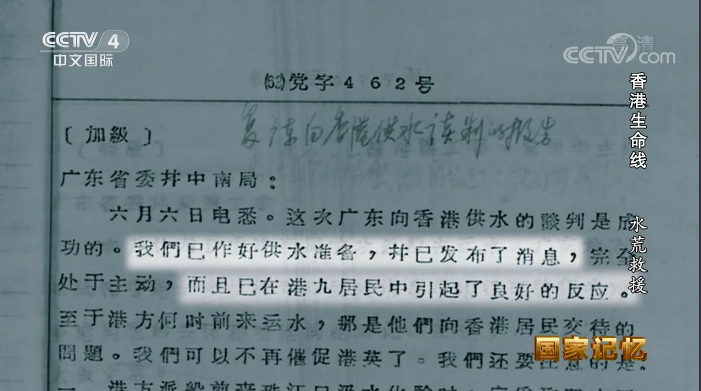 CCTV 4
中文国际
CCTV.com 高清
(63)党字462号
〔加級〕
复谈向香港供水谈判的报告
广东省委幷中南局：
六月六日电悉。这次广东向香港供水的談判是成
功的。我們已作好供水准备，幷已发布了消息，完全
处于主动，而且已在港九居民中引起了良好的反应。
至于港方何时前来运水，那是他們向香港居民交待的
問題。我們可以不再催促港英了。我們还要注意的是：
香港生命线 水荒救援
国家记忆